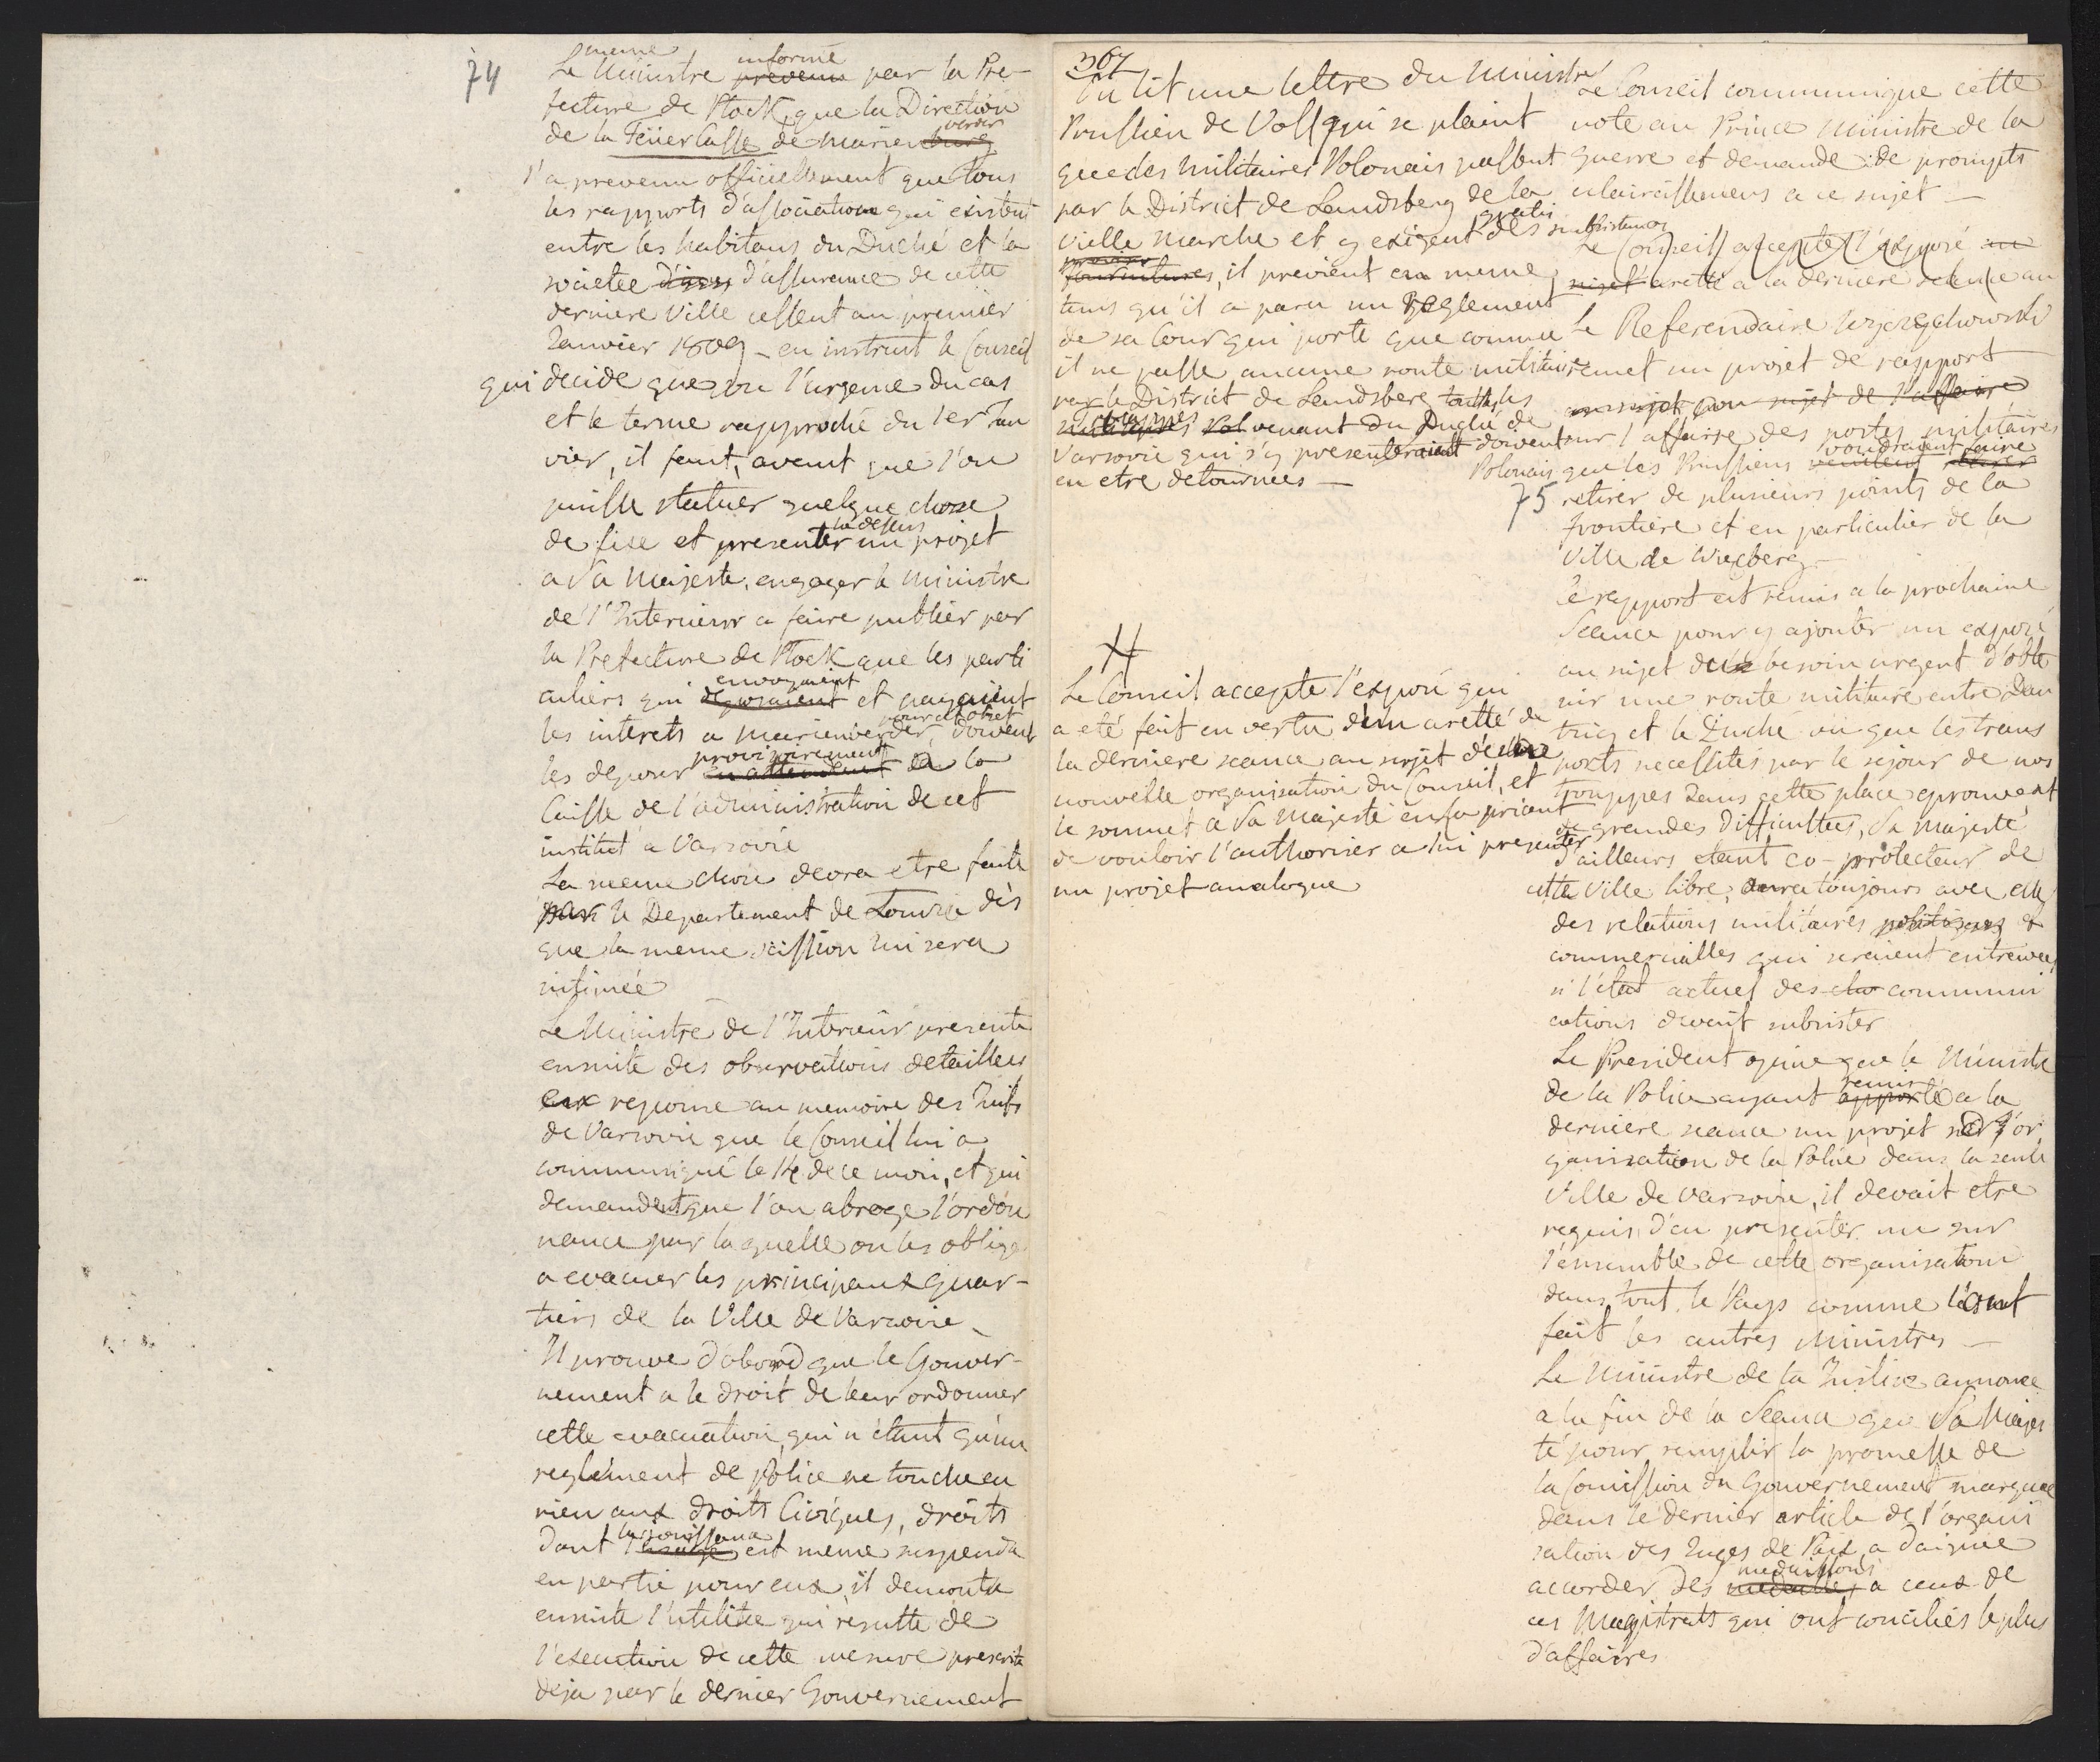 74
meme informé
Le Ministre prevenu par la Pre-
fecture de Plock, que la Direction
verder
de la Feüer Casse de Marienburg
l'a prevenu officiellement que tous
les rapports d'association qui existent
entre les habitans du Duché et la
societee d'assurance de cette
derniere Ville cessent au premier
Janvier 1809 – en instruit le Conseil
qui decide que vu l'urgence du cas
et le terme rapproché du 1er Jan
vier, il faut, avant que l'on
puisse statuer quelque chose
la dessus
de fixe et presenter un projet
a Sa Majeste, engager le Ministre
de l'Interieur a faire publier par
la Prefecture de Plock que les parti
envoyaient
culiers qui deposaient et payaient
pour cet objet
les interets a Marienverder doivent
provisoirement
les deposer en attendant à la
Caisse de l'administration de cet
institut a Varsovie
La meme chose devra etre faite
par le Departement de Lomza dès
que la meme scission lui sera
intimée
Le Ministre de l'Interieur presente
ensuite des observations detaillees
en reponse au memoire des Juifs
de Varsovie que le Conseil lui a
communiqué le 14 de ce mois, et qui
demandent que l'on abroge l'ordon
nance par laquelle on les oblige
a evacuer les principaux quar-
tiers de la Ville de Varsovie
Il prouve d'abord que le Gouver-
nement a le droit de leur ordonner
cette evacuation, qui n'étant qu'un
reglement de police ne touche en
rien aux droits Civiques, droits
la jouissance
dont l'usage est meme suspendu
en partie pour eux, il demontre
ensuite l'utilitee qui resulte de
l'execution de cette mesure prescrite
deja par le dernier Gouvernement
367
On lit une lettre du Ministre
Prussien de Voss qui se plaint
que des militaires Polonais passent
par le District de Landsberg de la
gratis
vielle Marche et y exigent des subsistances
fournitures, il previent en meme
tems qu'il a paru un Reglement
de sa Cour qui porte que comme
il ne passe aucune route militaire
par le District de Landsberg toutes les
venant du Duché de
Varsovie qui s'y presenteraient doivent
en etre detournées –
Le Conseil accepte l'exposé qui
a eté fait en vertu d'un aretté de
la derniere seance au sujet d'une
nouvelle organisation du Conseil, et
le soumet à Sa Majesté en la priant
de vouloir l'authoriser a lui presenter
un projet analogue
Le Conseil communique cette
note au Prince Ministre de la
guerre et demande de prompts
eclaircissemens a ce sujet –
Le Conseil accepte l'exposé au
sujet aretté a la derniere seance au
Le Referendaire
remet un projet de rapport
au sujet de l'affaire
sur l'affaire des postes militaires
voudraient faire
Polonais que les Prussiens veulent
75 retirer de plusieurs points de la
frontiere et en particulier de la
Ville de
Ce rapport est remis a la prochaine
Seance pour y ajouter un exposé
au sujet du besoin urgent d'obte
nir une route militaire entre Dan
tzig et le Duché vu que les trans
ports necessités par le sejour de nos
trouppes dans cette place eprouvent
de grandes difficultees, Sa Majesté
d'ailleurs etant co-protecteur de
cette Ville libre, aura toujours avec elle
des relations militaires politiques &
commerciales qui seraient entravées
si l'état actuel des communi
cations devait subsister
Le President opine que le Ministre
remis
de la Police ayant apporté a la
derniere seance un projet d'or
ganisation de la Police dans la seule
Ville de Varsovie, il devait etre
requis d'en presenter un sur
l'ensemble de cette organisation
dans tout le Pays comme l'ont
fait les autres Ministres –
Le Ministre de la Justice annonce
a la fin de la Seance que Sa Majes
té pour remplir la promesse de
la Comission du Gouvernement marquée
dans le dernier article de l'organi
sation des Juges de Paix a daigné
medaillons
accorder des medailles a ceux de
ces Magistrats qui ont conciliés le plus
d'affaires